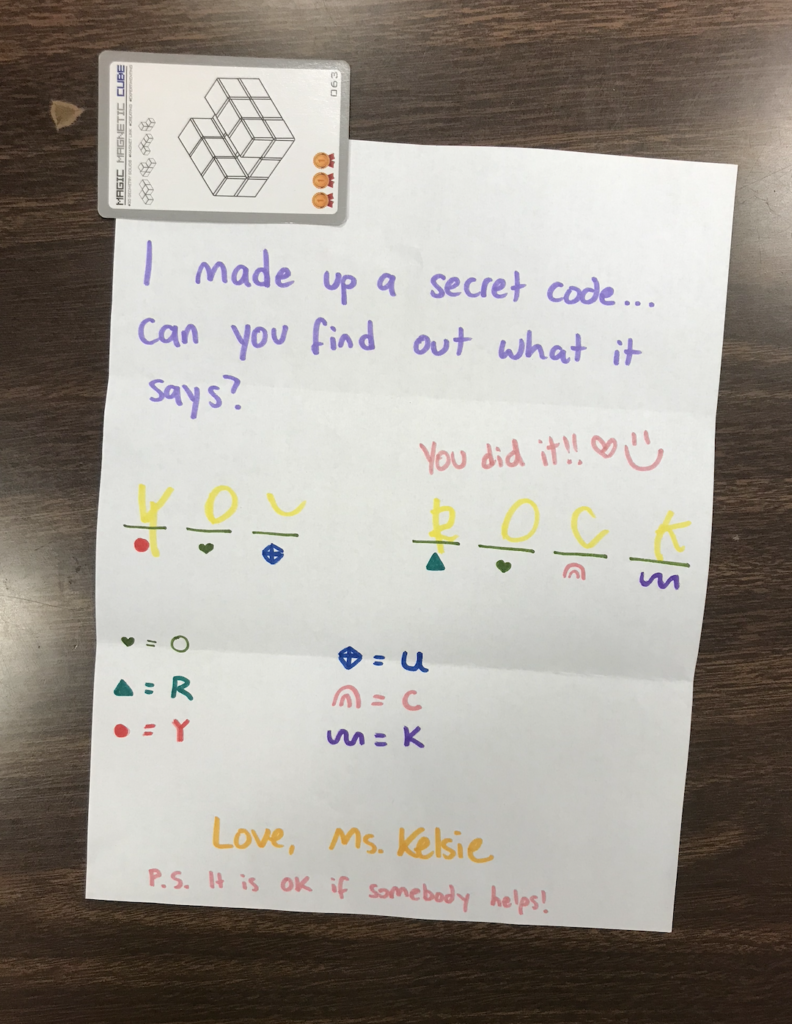 MAGIC MAGNETIC CUBE
063
I made up a secret code...
Can you find out what it
says?
You did it!!
Y O U
R O C K
= O
= R
= Y
= U
= C
= K
Love, Ms. Kelsie
P.S. It is OK if somebody helps!